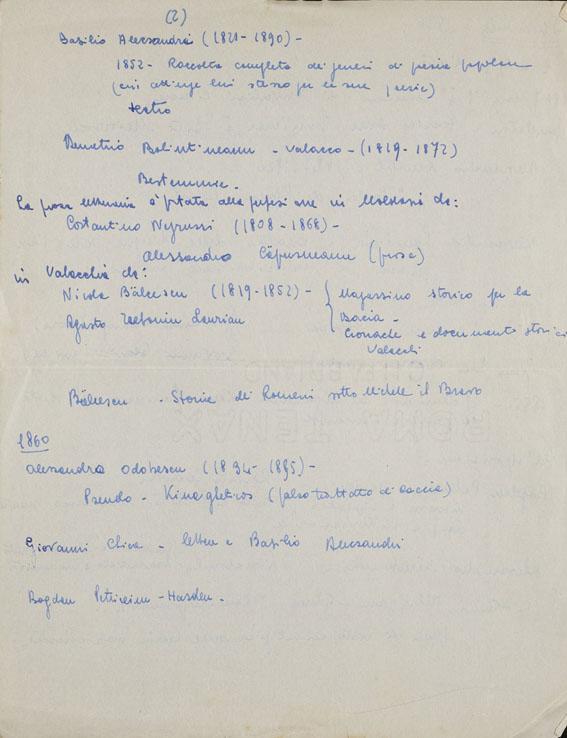 (2)
Basilio Alecsandri (1821-1890) -
1852 - Raccolta completa dei generi di poesia popolare
(cui attinge lui stesso per le sue poesie)
teatro
Demetrio Bolintineanu - Valacco - (1819-1872)
Bestemmie.
La prosa letteraria è portata alla perfezione in Moldavia da:
Costantino Negruzzi (1808-1868) -
Alessandro (prosa)
in Valacchia da:
Nicola Bălcescu (1819-1852) - { Magazzino storico per la
Agosto Laurian Dacia -
Cronache e documento storici
Valacchi
Bălcescu - Storia dei Romeni sotto Michele il Bravo
1860
Alessandro Odobescu (1834-1895) -
Pseudo - Kinegheticos (falso trattato di caccia)
Giovanni Ghica - lettere a Basilio Alecsandri
Bogdan Petriceicu - Hasdeu.